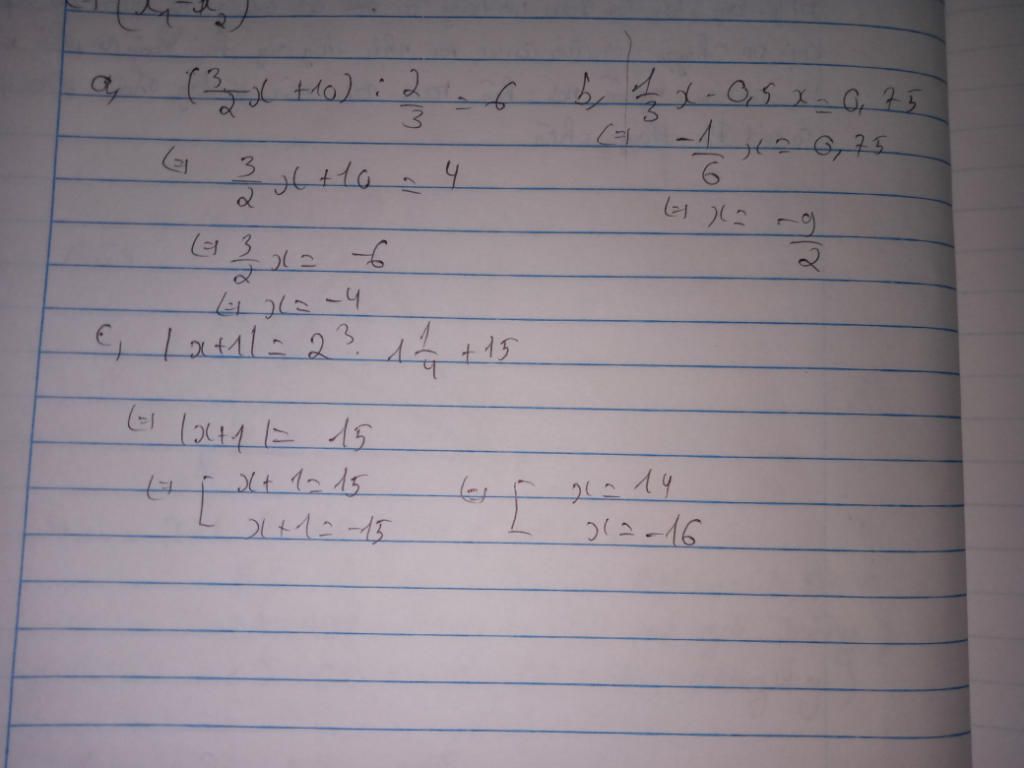 (x₁-x₂)
a, (3/2 x + 10) : 2/3 = 6
(=) 3/2 x + 10 = 4
(=) 3/2 x = -6
(=) x = -4
b, 1/3 x - 0,5 x = 0,75
(=) -1/6 x = 0,75
(=) x = -9/2
c, |x+1| = 2³. 1 1/4 + 15
(=) |x+1| = 15
(=) [ x+1=15 (=) [ x=14
x+1=-15 x=-16